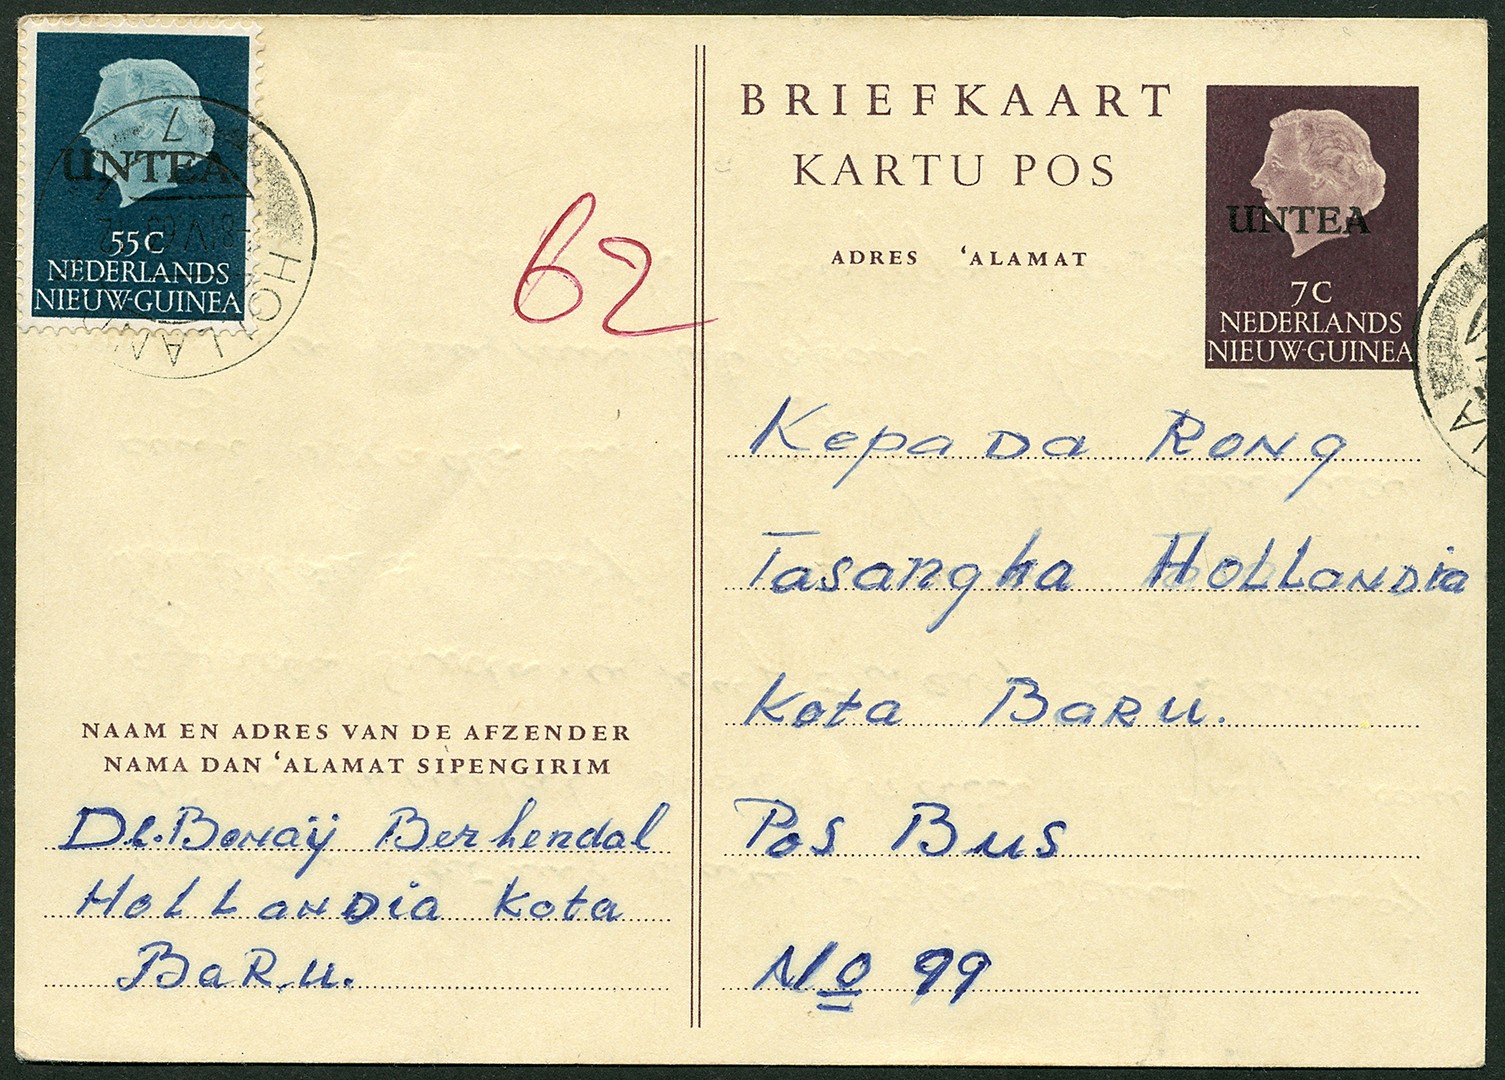 UNTEA
55C
NEDERLANDS
NIEUW-GUINEA
HOLLAN
62
NAAM EN ADRES VAN DE AFZENDER
NAMA DAN ‘ALAMAT SIPENGIRIM
De. Bonaÿ Berhendal
HOLLANDia Kota
BaRu.
BRIEFKAART
KARTU POS
ADRES ‘ALAMAT
UNTEA
7C
NEDERLANDS
NIEUW-GUINEA
Kepa Da RONg
Tasangka HOLLANDia
Kota BaRu.
Pos Bus
No 99